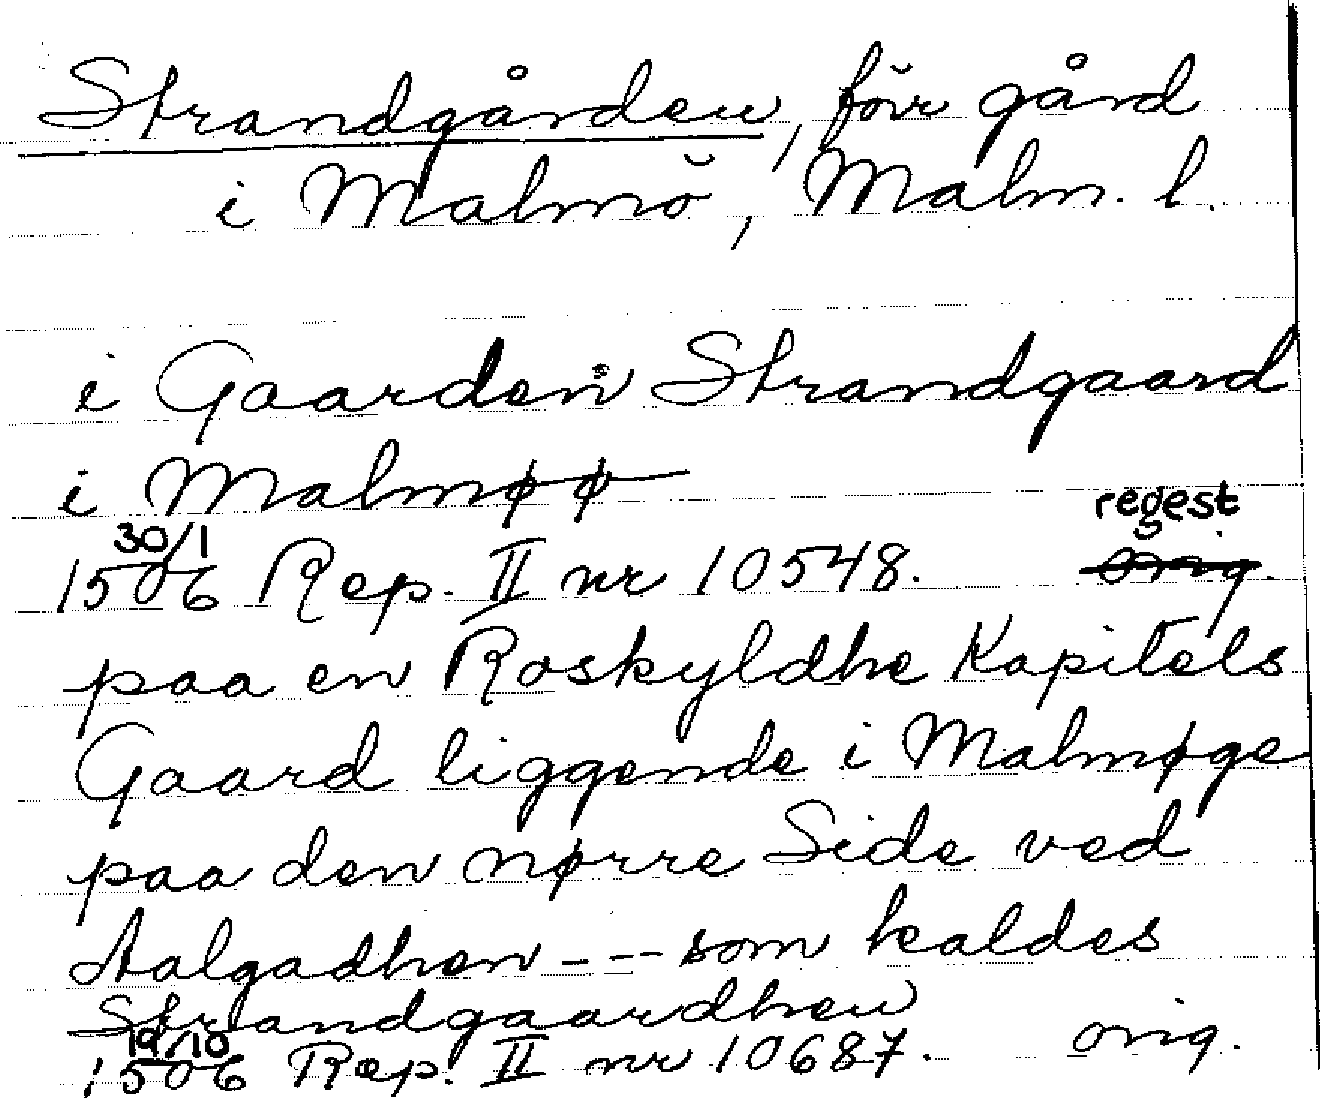 Strandgården, förr gård
i Malmö, Malm. l.
i Gaarden Strandgaard
i Malmøø
30/1 regest
1506 Rep. II nr 10548. orig.
paa en Roskyldhe Kapitels
Gaard liggende i Malmøge
paa den nørre Side ved
Aalgadhen --- som kaldes
Strandgaardhen
19/10
1506 Rep. II nr 10687. orig.